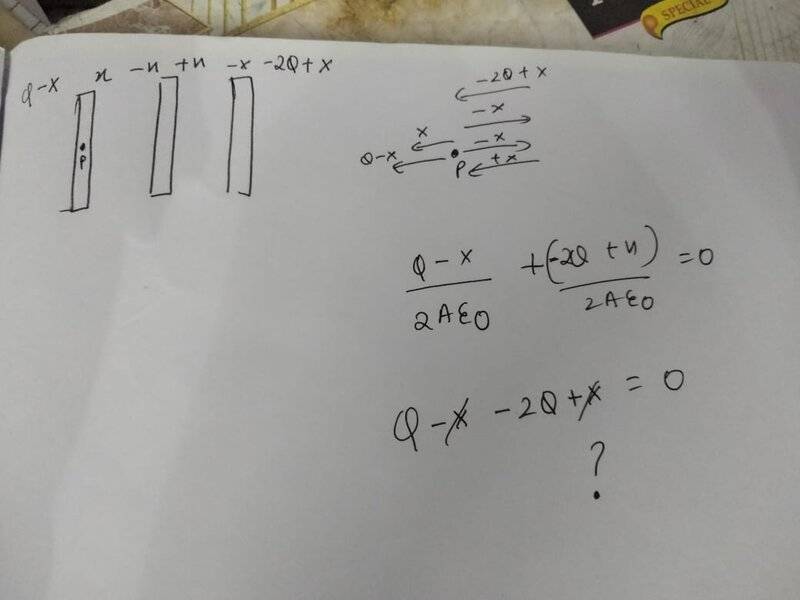 SPECIAL
Q-x x -x +x -x -2Q+x
P
-2Q+x
-x
x -x
Q-x +x
P
Q-x/2Aε0 + (-2Q+x)/2Aε0 = 0
Q-x-2Q+x = 0
?